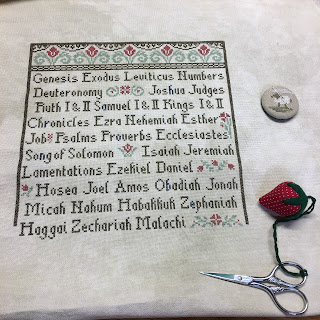 Genesis Exodus Leviticus Numbers
Deuteronomy Joshua Judges
Ruth I & II Samuel I & II Kings I & II
Chronicles Ezra Nehemiah Esther
Job Psalms Proverbs Ecclesiastes
Song of Solomon Isaiah Jeremiah
Lamentations Ezekiel Daniel
Hosea Joel Amos Obadiah Jonah
Micah Nahum Habakkuk Zephaniah
Haggai Zechariah Malachi